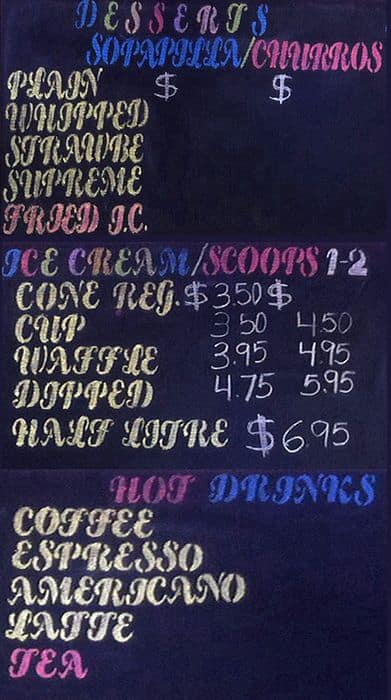 DESSERTS
SOPAPILLA/CHURROS
PLAIN $ $
WHIPPED
STRAWBE
SUPREME
FRIED I.C.
ICE CREAM/SCOOPS 1-2
CONE REG. $ 3.50 $
CUP 3.50 4.50
WAFFLE 3.95 4.95
DIPPED 4.75 5.95
HALF LITRE $ 6.95
HOT DRINKS
COFFEE
ESPRESSO
AMERICANO
LATTE
TEA